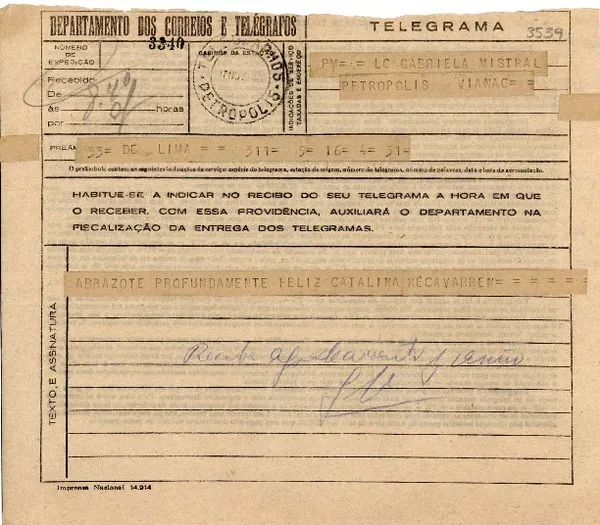 DEPARTAMENTO DOS CORREIOS E TELÉGRAFOS
TELEGRAMA
3340
3539
NÚMERO
DE
EXPEDIÇÃO
CARIMBO DA ESTAÇÃO
INDICAÇÕES DE SERVIÇO
TAXADAS E ENDERÊÇO
PETROPOLIS
PM= = LC GABRIELA MISTRAL
PETROPOLIS VIANAC= =
Recebido
De
às horas
por
PREÂM
33= DE LIMA = = 311- 9- 16- 4- 31-
O preâmbulo contém as seguintes indicações de serviço: espécie do telegrama, estação de origem, número do telegrama, número de palavras, data e hora da apresentação.
HABITUE-SE A INDICAR NO RECIBO DO SEU TELEGRAMA A HORA EM QUE
O RECEBER. COM ESSA PROVIDÊNCIA, AUXILIARÁ O DEPARTAMENTO NA
FISCALIZAÇÃO DA ENTREGA DOS TELEGRAMAS.
TEXTO E ASSINATURA
ABRAZOTE PROFUNDAMENTE FELIZ CATALINA RECAVARREN= = = = =
Imprensa Nacional 14.914